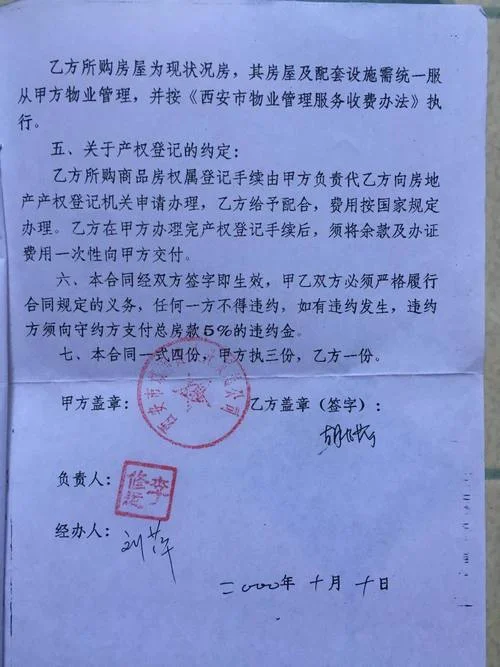 乙方所购房屋为现状况房，其房屋及配套设施需统一服
从甲方物业管理，并按《西安市物业管理服务收费办法》执
行。
五、关于产权登记的约定：
乙方所购商品房权属登记手续由甲方负责代乙方向房地
产产权登记机关申请办理，乙方给予配合，费用按国家规定
办理。乙方在甲方办理完产权登记手续后，须将余款及办证
费用一次性向甲方交付。
六、本合同经双方签字即生效，甲乙双方必须严格履行
合同规定的义务，任何一方不得违约，如有违约发生，违约
方须向守约方支付总房款5%的违约金。
七、本合同一式四份，甲方执三份，乙方一份。
甲方盖章：
西安市 公司
乙方盖章（签字）：
胡
负责人：
李
修
经办人：
刘萍
二〇〇〇年十月十日